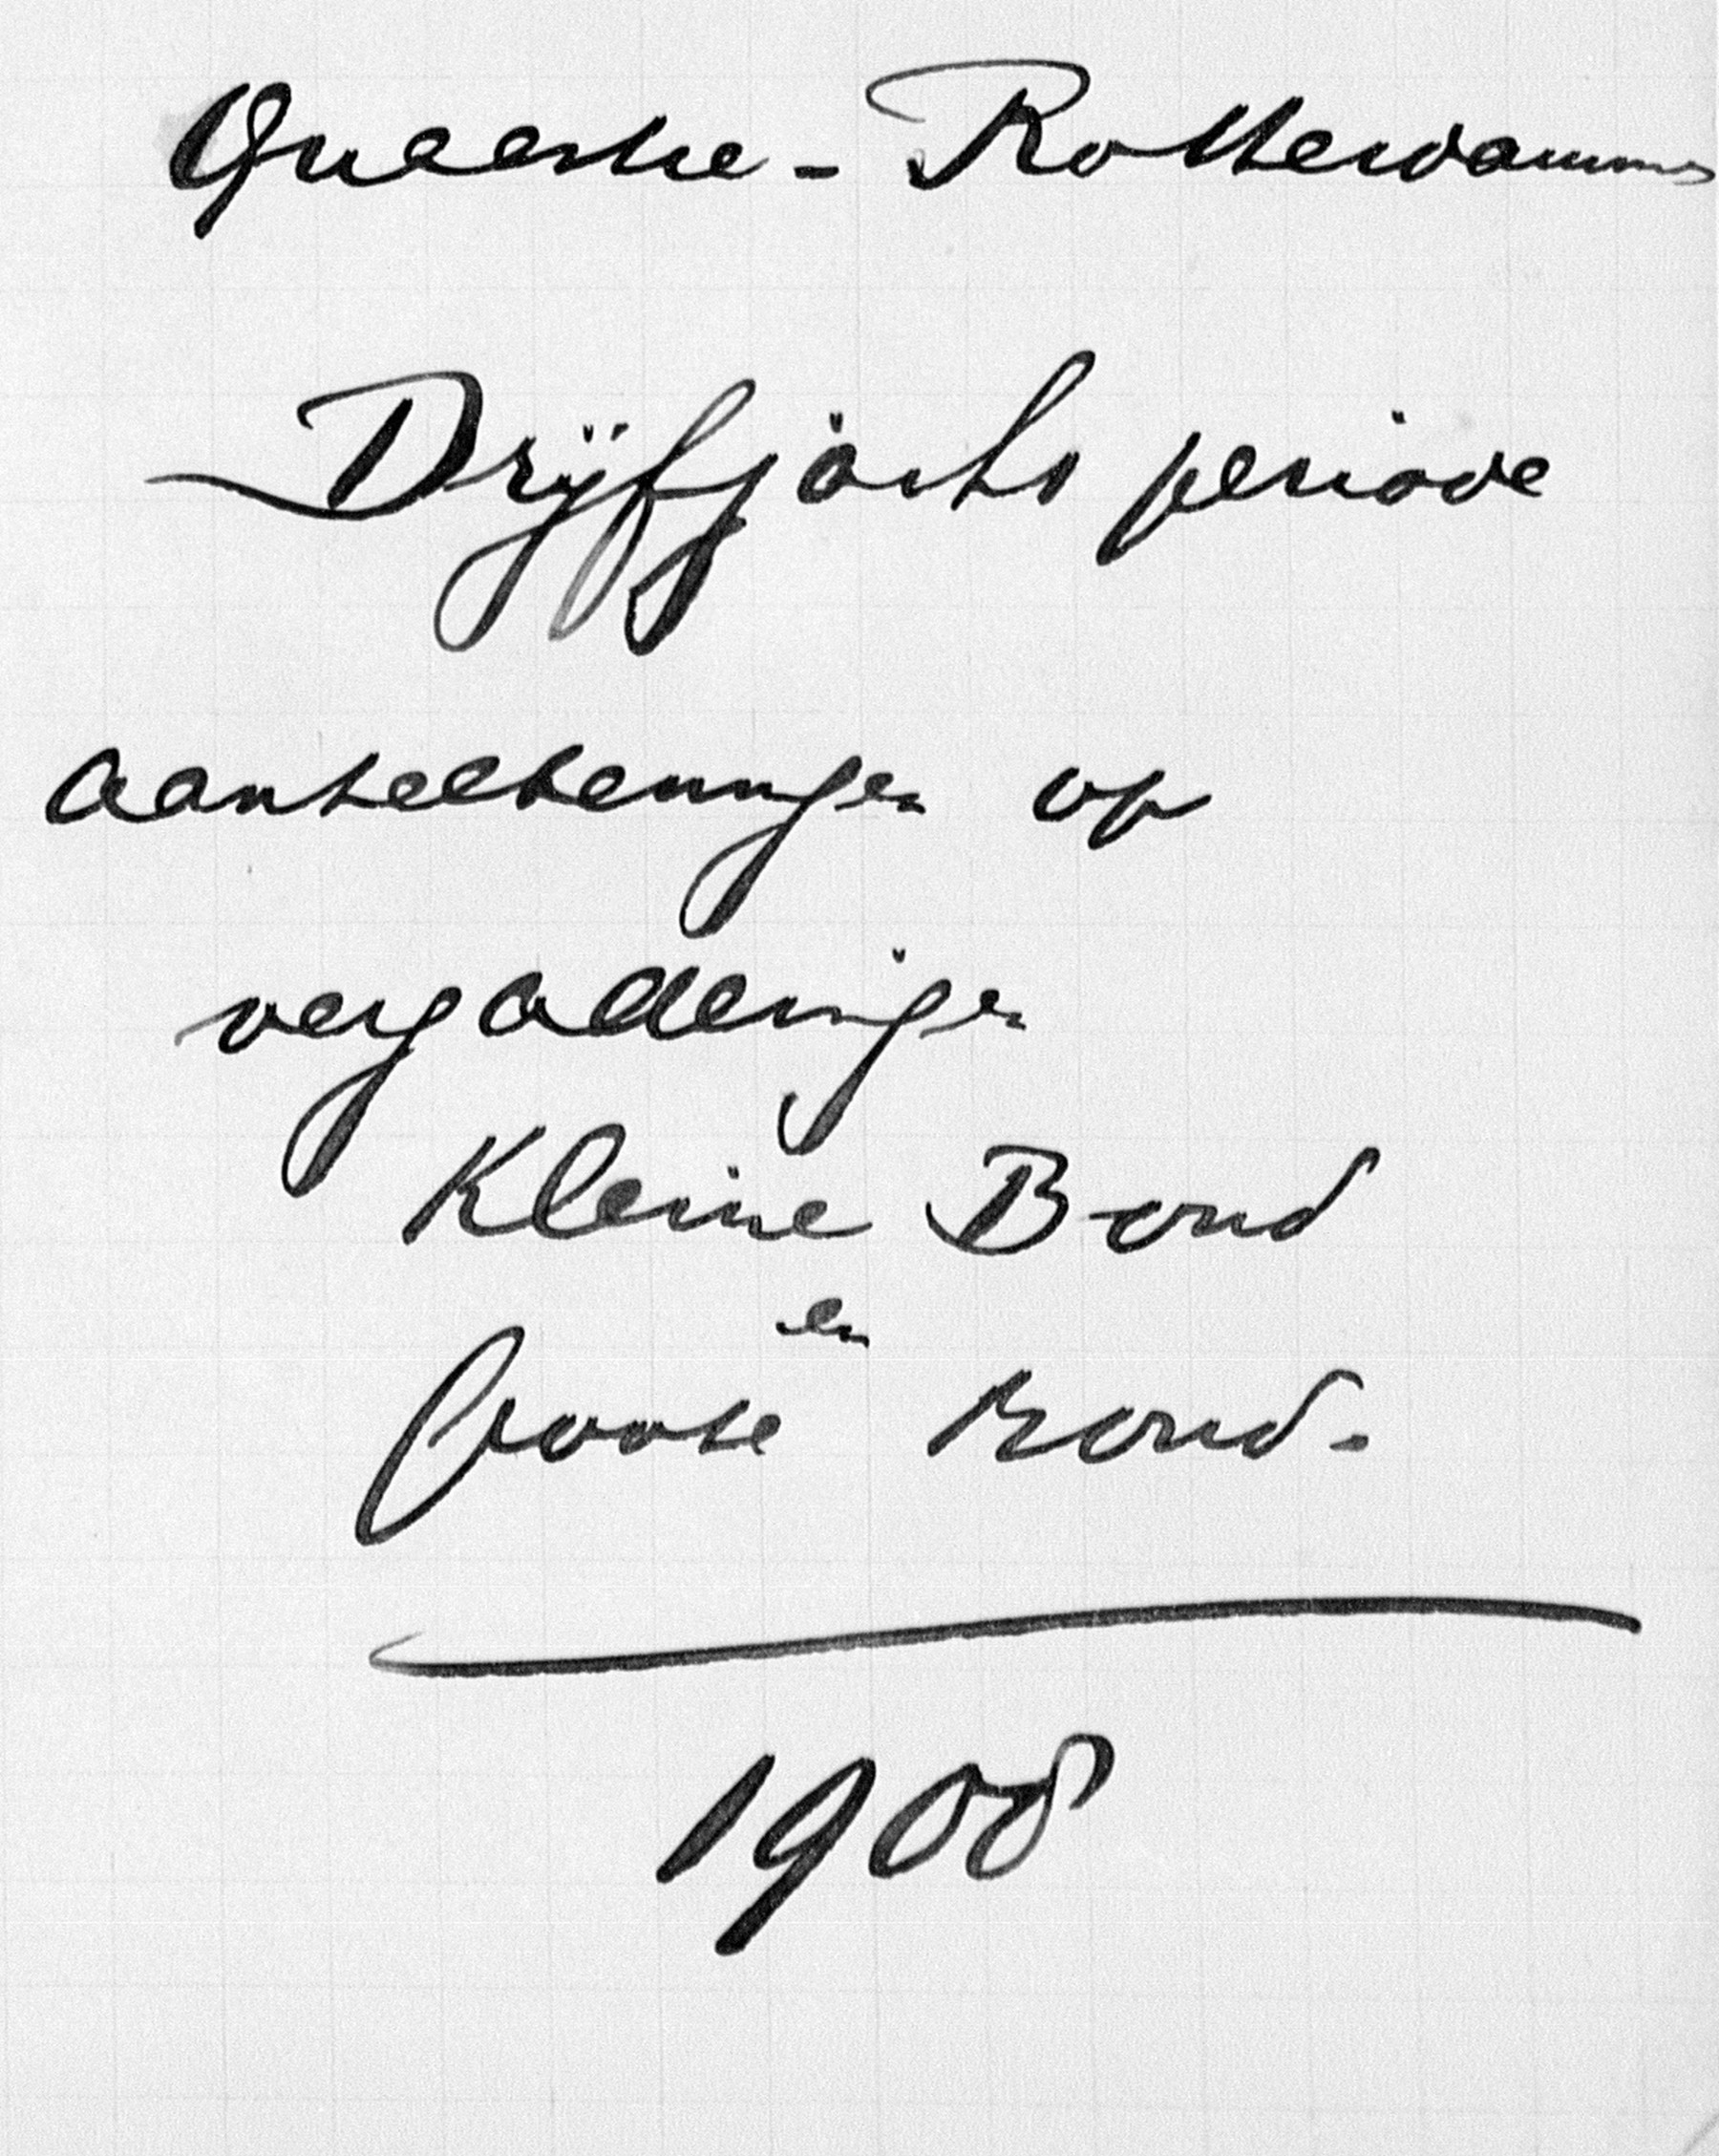 Quaestie - Rotterdammer
Drijfjachs periode
aanteekeningen op
vergaderingen
Kleine Bond
en
Groote Bond.
1908